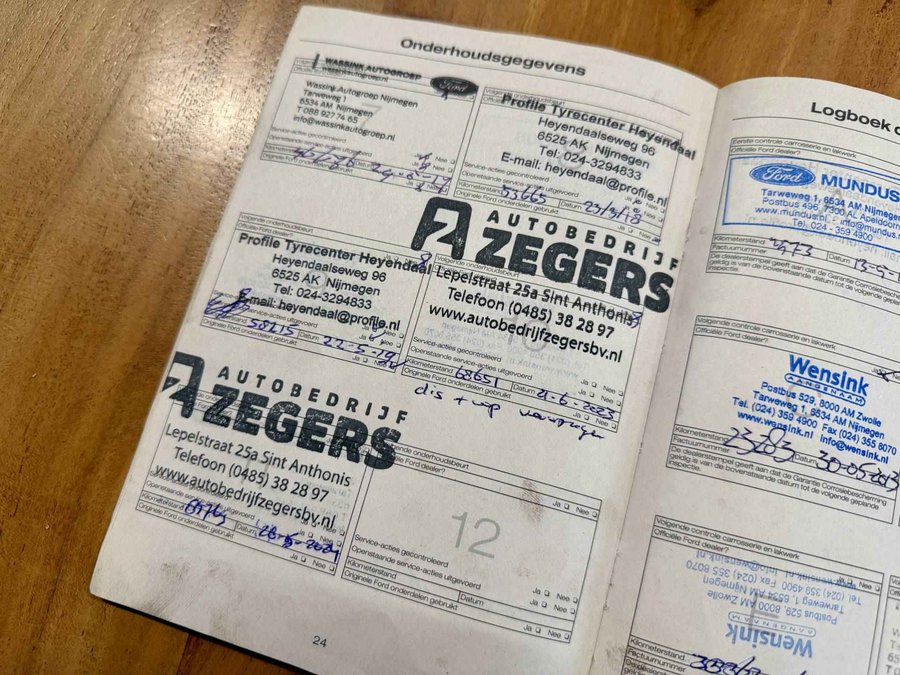 Onderhoudsgegevens
WASSINK AUTOGROEP
wassinkautogroep.nl
Ford
Wassink Autogroep Nijmegen
Tarweweg 1
6534 AM Nijmegen
T 088 927 74 65
info@wassinkautogroep.nl
Service-acties gecontroleerd
Openstaande service-acties uitgevoerd
Kilometerstand Datum
Originele Ford onderdelen gebruikt
Ja Nee
Profile Tyrecenter Heyendaal
Heyendaalseweg 96
6525 AK Nijmegen
Tel: 024-3294833
E-mail: heyendaal@profile.nl
Service-acties gecontroleerd
Openstaande service-acties uitgevoerd
Kilometerstand 53665 Datum 23/3/18
Originele Ford onderdelen gebruikt
Ja Nee
Volgende onderhoudsbeurt
Profile Tyrecenter Heyendaal
Heyendaalseweg 96
6525 AK Nijmegen
Tel: 024-3294833
E-mail: heyendaal@profile.nl
service-acties uitgevoerd
Kilometerstand 58215 Datum 22-5-19
Originele Ford onderdelen gebruikt
Ja Nee
AUTOBEDRIJF
AZEGERS
Volgende onderhoudsbeurt
Lepelstraat 25a Sint Anthonis
Telefoon (0485) 38 28 97
www.autobedrijfzegersbv.nl
Service-acties gecontroleerd
Openstaande service-acties uitgevoerd
Kilometerstand 68651 Datum 21-6-2023
Originele Ford onderdelen gebruikt
Ja Nee
Ja Nee
dis + vlp vervangen
AUTOBEDRIJF
AZEGERS
Lepelstraat 25a Sint Anthonis
Telefoon (0485) 38 28 97
www.autobedrijfzegersbv.nl
Openstaande service-acties uitgevoerd
Kilometerstand Datum
Originele Ford onderdelen gebruikt
Ja Nee
Volgende onderhoudsbeurt
Officiële Ford dealer?
Ja Nee
12
Service-acties gecontroleerd
Openstaande service-acties uitgevoerd
Kilometerstand Datum
Originele Ford onderdelen gebruikt
Ja Nee
Ja Nee
Ja Nee
24
Logboek
Eerste controle carrosserie en lakwerk
Officiële Ford dealer?
Ford MUNDUS
Tarweweg 1, 6534 AM Nijmegen
Postbus 496, 7300 AL Apeldoorn
www.mundus.nl - info@mundus.
Tel. 024 - 359 4900
Kilometerstand Datum
De dealerstempel geeft aan dat de Garantie Corrosiebescherming
geldig is van de bovenstaande datum tot de volgende
Volgende controle carrosserie en lakwerk
Officiële Ford dealer?
Wensink
AANGENAAM
Postbus 529, 8000 AM Zwolle
Tarweweg 1, 6534 AM Nijmegen
Tel. (024) 359 4900 Fax (024) 355 8070
www.wensink.nl info@wensink.nl
Kilometerstand 23283
Factuurnummer Datum 30-05-2013
De dealerstempel geeft aan dat de Garantie Corrosiebescherming
geldig is van de bovenstaande datum tot de volgende geplande
inspectie.
Volgende controle carrosserie en lakwerk
Officiële Ford dealer?
Ja Nee
www.wensink.nl info@wensink.nl
Tel. (024) 359 4900 Fax (024) 355 8070
Tarweweg 1, 6534 AM Nijmegen
Postbus 529, 8000 AM Zwolle
AANGENAAM
Wensink
Kilometerstand
Factuurnummer
De dealerstempel